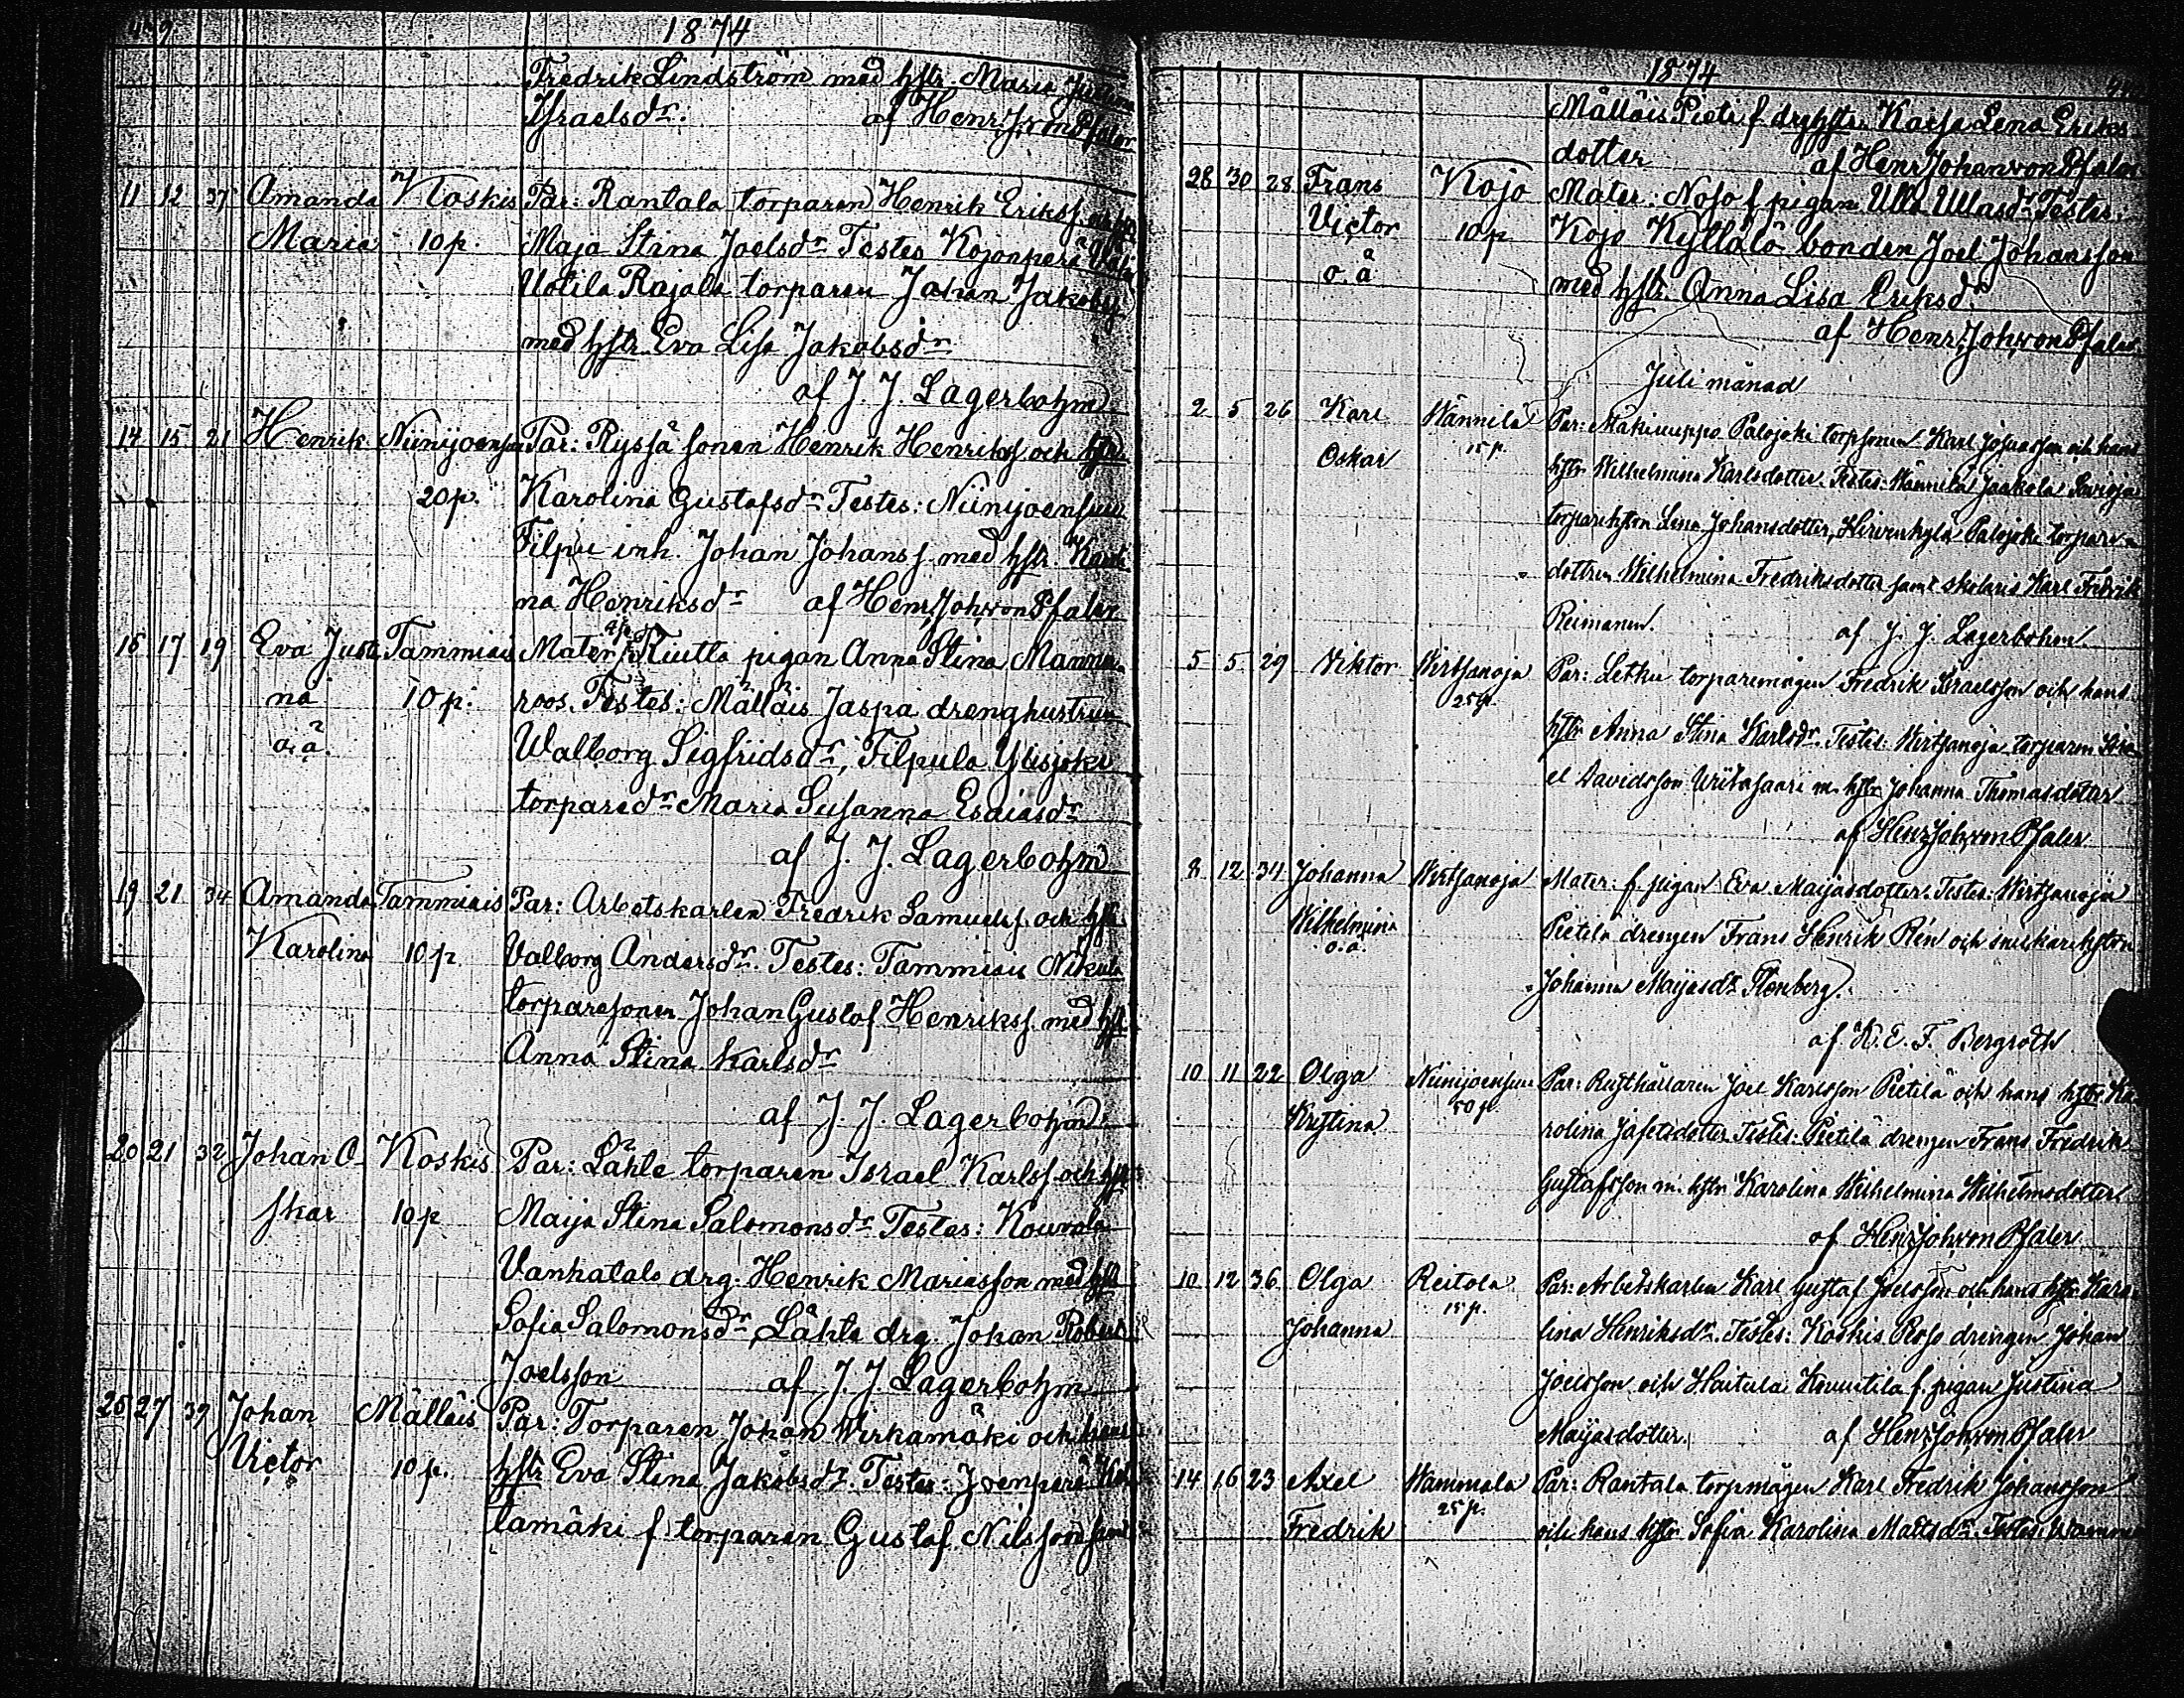 1874
Fredrik Lindström med hstr. Maria
Israelsdr. af Henr. J. von Pfaler
11 12 37 Amanda Koskis Par: Rantala torparen Henrik Erikss.
Maria 10 p. Maja Stina Joelsdr Testes Kojonperä
Uotila Rajala torparen Johan Jakobss.
med hstr Eva Lisa Jakobsdr
af J. J. Lagerbohm
14 15 21 Henrik Niinijoensuu Par: Ryssä sonen Henrik Henrikss och hstr
20 p. Karolina Gustafsdr Testes: Niinijoensuu
Filpu inh. Johan Johanss. med hstr. Karoli
na Henriksdr af Henr. Joh. von Pfaler
15 17 19 Eva Justi Tammiais Mater: Riutta pigan Anna Stina Manna
na 10 p. roos. Testes: Mälläis Jaspa drenghustrun
o. ä. Walborg Sigfridsdr, Filpula Ylisjoki
torparedr Maria Susanna Esaiasdr
af J. J. Lagerbohm
19 21 34 Amanda Tammiais Par: Arbetskarlen Fredrik Samuelss. och hstr
Karolina 10 p. Valborg Andersdr. Testes: Tammiais Nikula
torparesonen Johan Gustaf Henrikss. med hstr
Anna Stina Karlsdr
af J. J. Lagerbohm
20 21 32 Johan O- Koskis Par: Lähle torparen Israel Karlss. och hstr
skar 10 p Maija Stina Salomonsdr Testes: Kouvola
Vanhatalo drg. Henrik Mariasson med hstr
Sofia Salomonsdr, Lähle drg. Johan Robert
Joelsson af J. J. Lagerbohm
25 27 39 Johan Mälläis Par: Torparen Johan Wirkamäki och hans
Victor 10 p. hstr Eva Stina Jakobsdr. Testes: Joenperä
lamäki f. torparen Gustaf Nilsson samt
1874
Mälläis Pieti f. drghstr. Kaisa Lena Eriks
dotter af Henr Johan von Pfaler
28 30 28 Frans Kojo Mater: Noso f. pigan Ulla Ullasdr. Testes:
Victor 10 p Kojo Kyllälö bonden Joel Johansson
o. ä med hstr. Anna Lisa Eriksdr
af Henr. Joh. von Pfaler
Juli månad
2 5 26 Karl Wännilä Par: Mäkiuuppo Palojoki torpsonen Karl Josuasson och hans
Oskar 15 p. hstr Wilhelmina Karlsdotter. Testes: Wännilä Jaakola
torparehstrn Lena Johansdotter, Hirvenkylä Palojoki torpare
dottren Wilhelmina Fredriksdotter samt skolaris Karl Fredrik
Reimanen. af J. J. Lagerbohm.
5 5 29 Viktor Wirtsanoja Par: Letku torparemågen Fredrik Israelsson och hans
25 p. hstr Anna Stina Karlsdr. Testes: Wirtsanoja torparen Isra
el Davidsson m. hstr Johanna Thomasdotter
af Henr Joh. von Pfaler
8 12 34 Johanna Wirtsanoja Mater: f. pigan Eva Maijasdotter. Testes: Wirtsanoja
Wilhelmina Pietilä drengen Frans Henrik Rén och snickarehstrn
o. ä. Johanna Maijasdr
af K. E. F. Bergroth
10 11 22 Olga Niinijoensuu Par: Rusthållaren Joel Karlsson Pietilä och hans hstr Ka
Kristina 50 p. rolina Jafetsdotter Testes: Pietilä drengen Frans Fredrik
Gustafsson m. hstr Karolina Wilhelmina Wilhelmsdotter
af Henr Joh. von Pfaler
10 12 36 Olga Reitola Par: Arbetskarlen Karl Gustaf Joelsson och hans hstr Karo
Johanna 15 p. lina Henriksdr. Testes: Koskis Roso drengen Johan
Joelsson och Haitula Kouvitila f. pigan Justina
Maijasdotter. af Henr Joh. von Pfaler
14 16 23 Axel Wammala Par: Rantala torpmågen Karl Fredrik Johansson
Fredrik 25 p. och hans hstr Sofia Karolina Mattsdr. Testes: Wamma